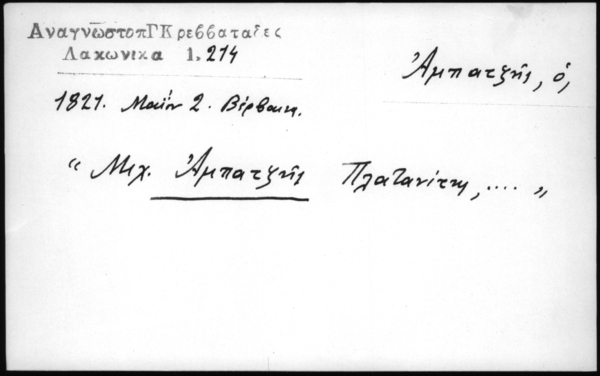 ΑναγνωστοπΓΚρεββαταδες
Λακωνικα 1. 214
Ἀμπατζῆς, ὁ,
1821. Μαΐου 2. Βέρβαινα.
“ Μιχ. Ἀμπατζῆς Πλατανίτης, .... „